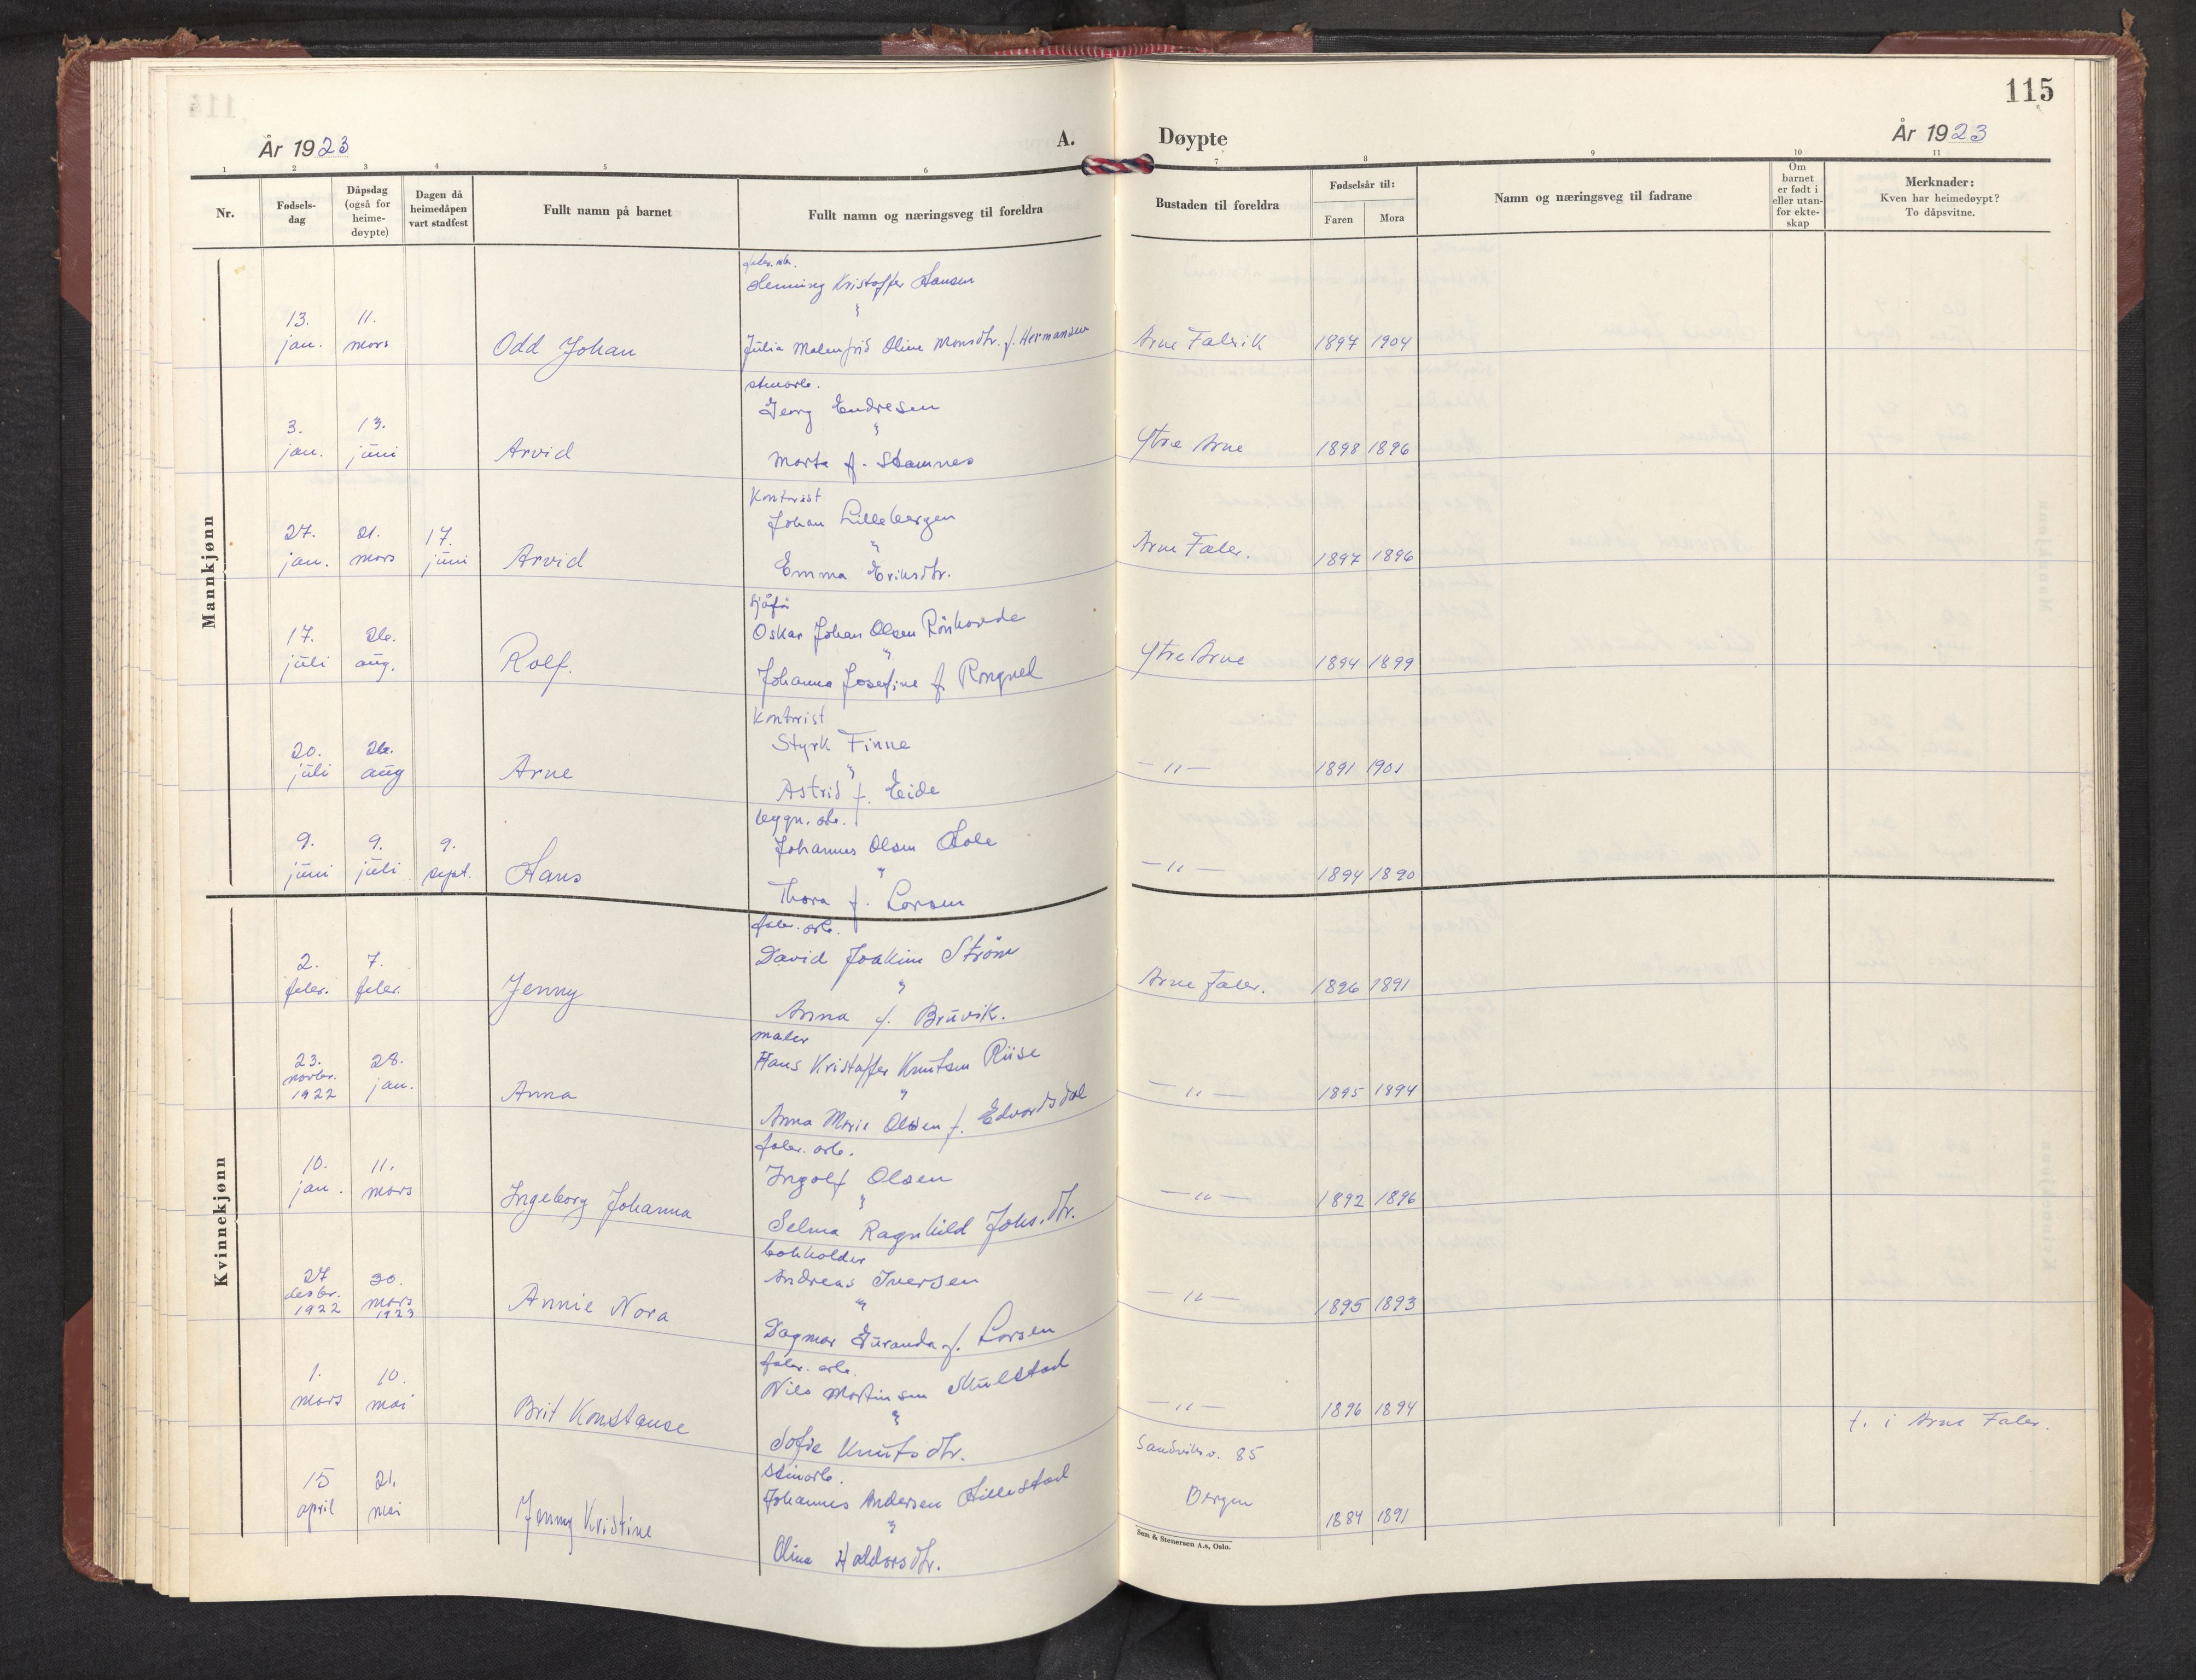 115
År 1923
A.
Døypte
År 1923
1 2 3 4 5 6 7 8 9 10 11
Nr.
Fødsels-
dag
Dåpsdag
(også for
heime-
døypte)
Dagen då
heimedåpen
vart stadfest
Fullt namn på barnet
Fullt namn og næringsveg til foreldra
Bustaden til foreldra
Fødselsår til:
Faren Mora
Namn og næringsveg til fadrane
Om
barnet
er født i
eller utan-
for ekte-
skap
Merknader:
Kven har heimedøypt?
To dåpsvitne.
Mannkjønn
fabr. arb.
Henning Kristoffer Hansen
"
13. jan. 11. mars Odd Johan Julia Malenfrid Oline Monsdtr. f. Hermansen Arne Fabrik 1897 1904
stenarb.
Georg Endresen
"
3. jan. 13. juni Arvid Marta f. Stamnes Ytre Arne 1898 1896
Kontorist
Johan Lillebergen
"
27. jan. 21. mars 17. juni Arvid Emma Eriksdtr. Arne Fabr. 1897 1896
sjåfør
Oskar Johan Olsen Rönhovde
"
17. juli 26. aug. Rolf. Johanna Josefine f. Rongved Ytre Arne 1894 1899
Kontorist
Styrk Finne
"
20. juli 26. aug Arne Astrid f. Eide — " — 1891 1901
bygn. arb.
Johannes Olsen Hole
"
9. juni 9. juli 9. sept. Hans Thora f. Larsen — " — 1894 1890
Kvinnekjønn
fabr. arb.
David Joakim Ström
"
2. febr. 7. febr. Jenny Anna f. Bruvik. Arne Fabr. 1896 1891
maler
Hans Kristoffer Knutsen Riise
"
23. novbr. 1922 28. jan. Anna Anna Marie Olsen f. Edvardsdal — " — 1895 1894
fabr. arb.
Ingolf Olsen
"
10. jan. 11. mars Ingeborg Johanna Selma Ragnhild Johs. dtr. — " — 1892 1896
bokholder
Andreas Iversen
"
27 desbr. 1922 30. mars 1923 Annie Nora Dagmar Guranda f. Larsen — " — 1895 1893
fabr. arb.
Nils Martinsen Skulstad
"
1. mars 10. mai Brit Konstanse Sofie Knutsdtr. — " — 1896 1894
stinarb.
Johannes Andersen Hillestad
"
15 april 21. mai Jenny Kristine Olina Haldorsdtr. Sandviksv. 85 Bergen 1884 1891 f. i Arne Fabr.
Sem & Stenersen A.s, Oslo.